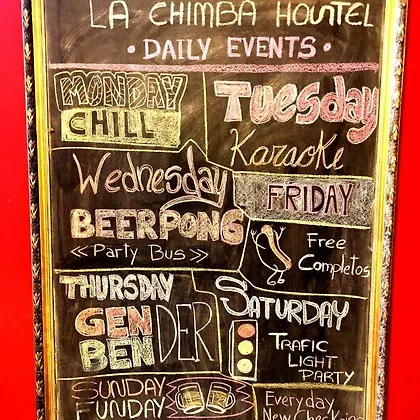 LA CHIMBA HOUSTEL
• DAILY EVENTS •
MONDAY
CHILL
Tuesday
Karaoke
Wednesday
BEERPONG
<< Party Bus >>
FRIDAY
Free
Completos
THURSDAY
GEN
BENDER
SATURDAY
TRAFIC
LIGHT
PARTY
SUNDAY
FUNDAY
Everyday
New Check-ins